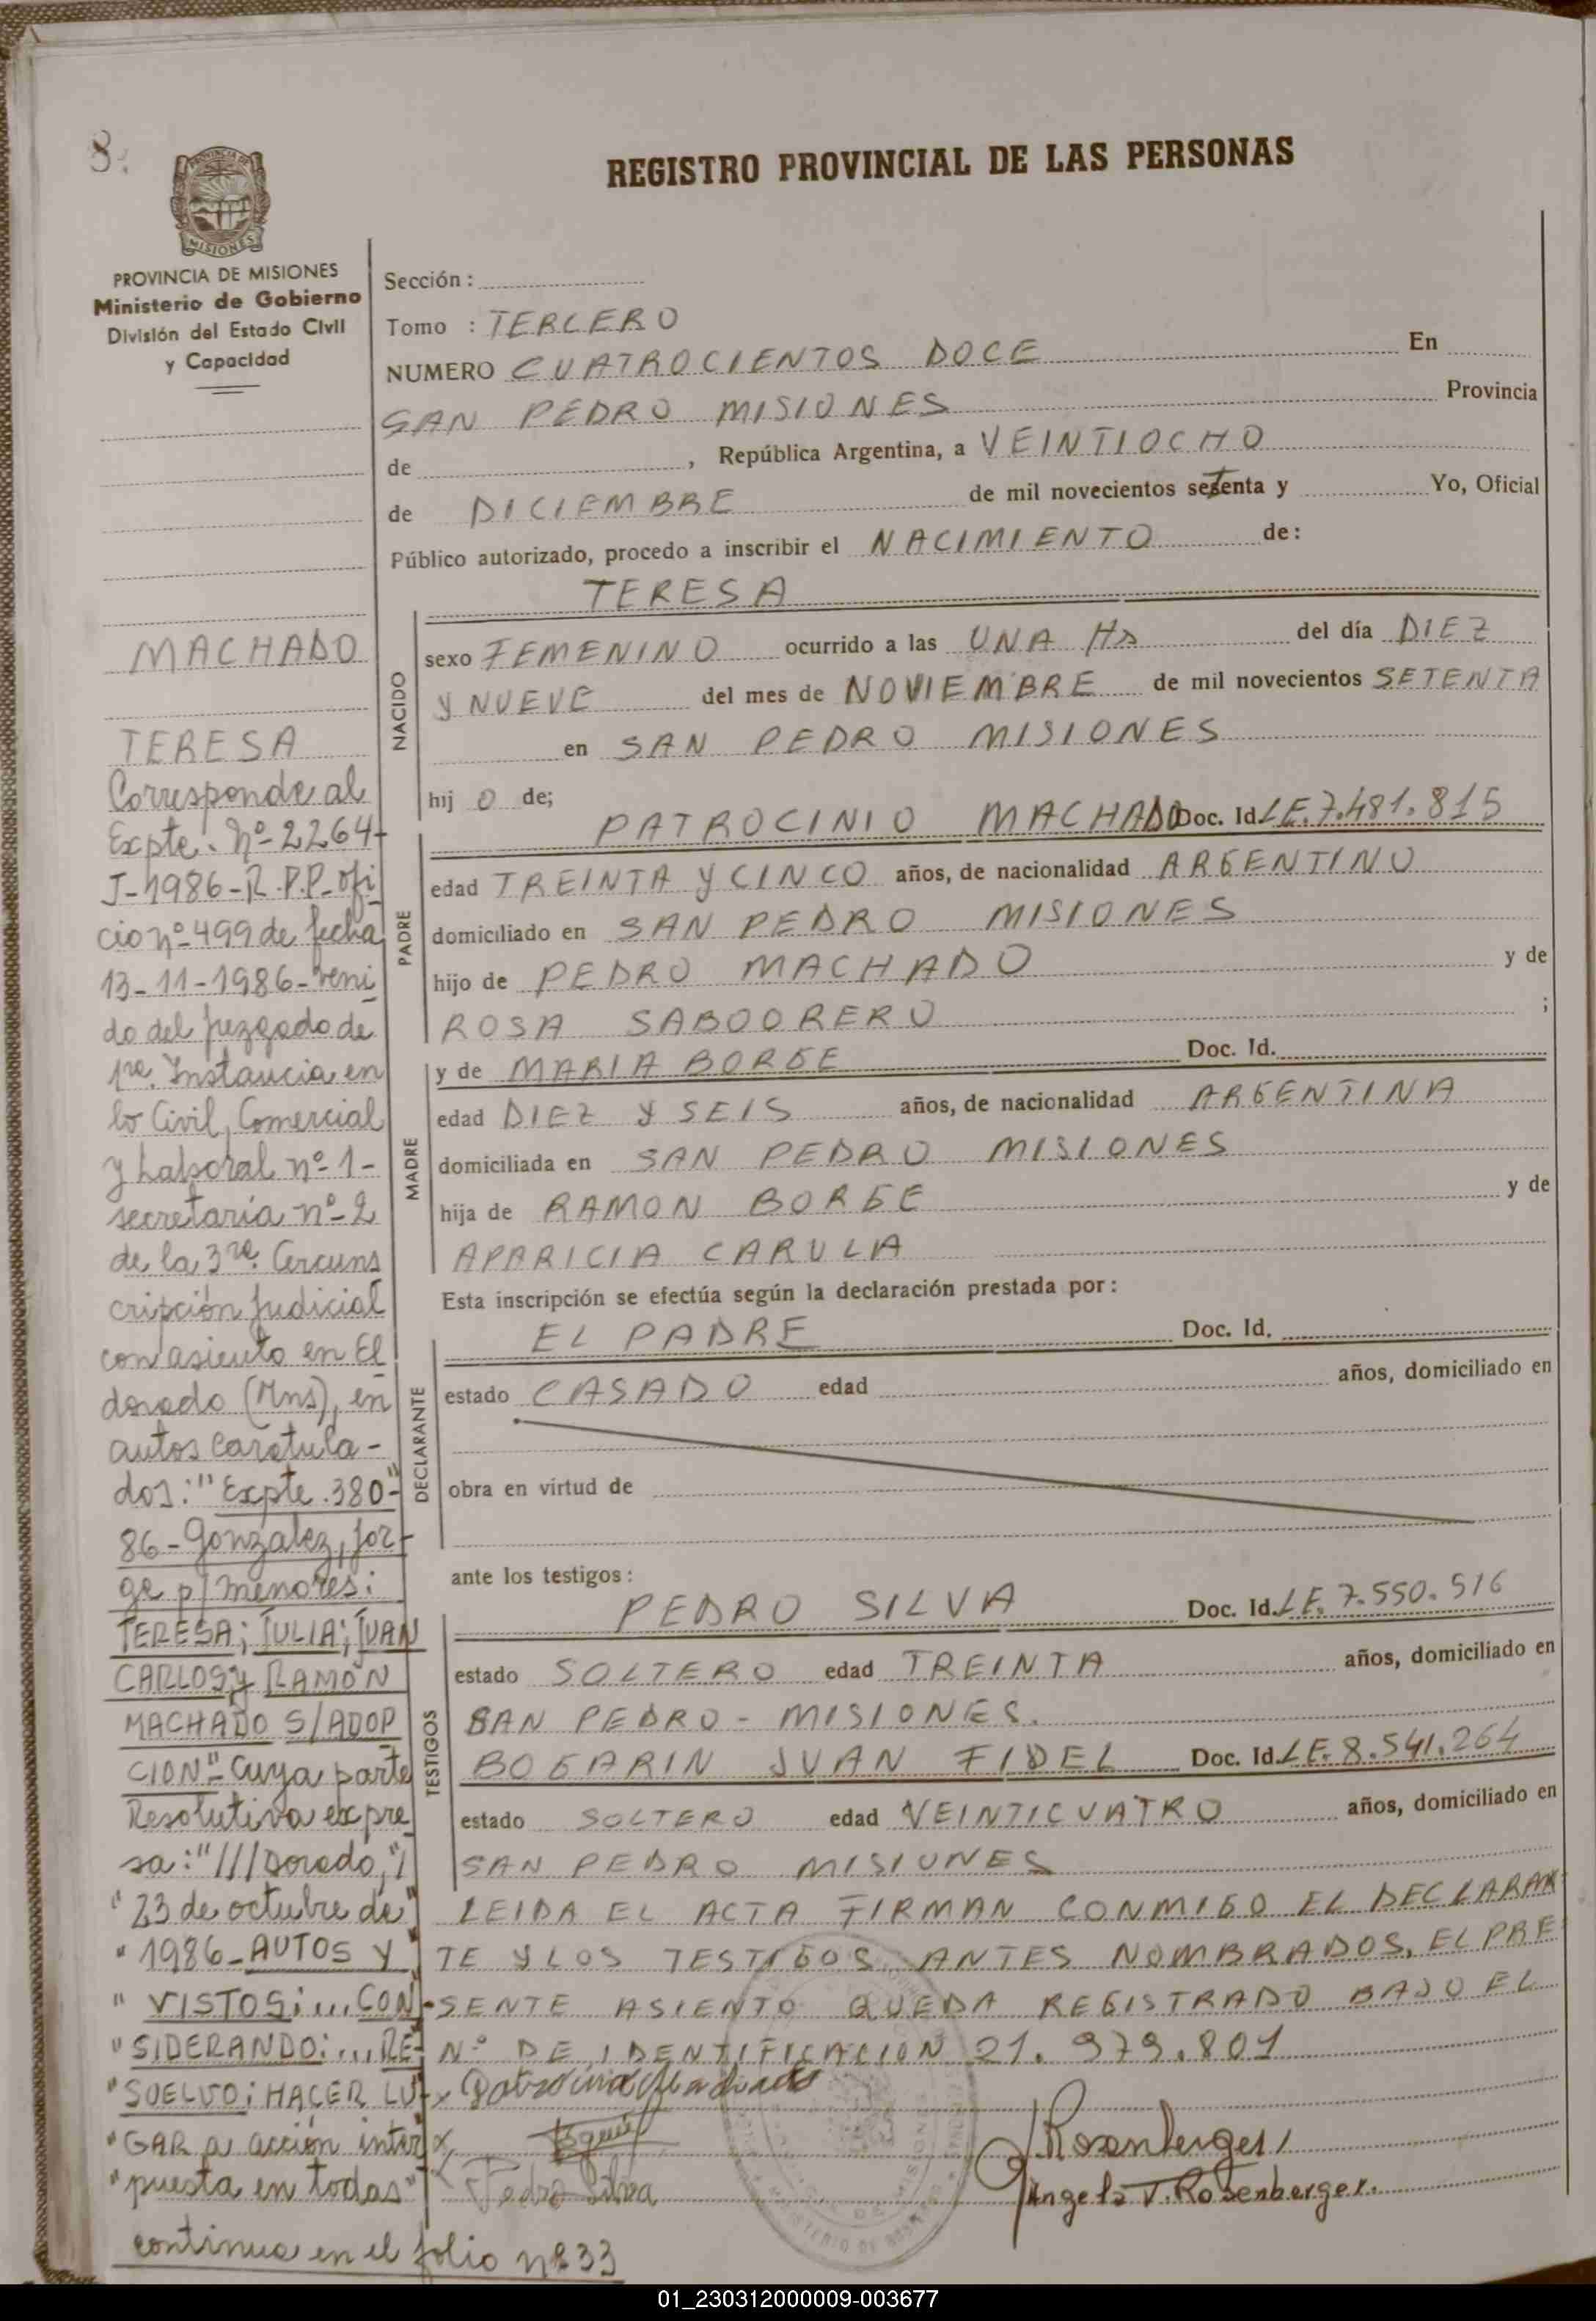 8.
PROVINCIA DE
MISIONES
REGISTRO PROVINCIAL DE LAS PERSONAS
PROVINCIA DE MISIONES
Ministerio de Gobierno
División del Estado Civil
y Capacidad
Sección :
Tomo : TERCERO
NUMERO CUATROCIENTOS DOCE En
SAN PEDRO MISIONES Provincia
de , República Argentina, a VEINTIOCHO
de DICIEMBRE de mil novecientos setenta y Yo, Oficial
Público autorizado, procedo a inscribir el NACIMIENTO de:
TERESA
NACIDO
sexo FEMENINO ocurrido a las UNA Hs del día DIEZ
Y NUEVE del mes de NOVIEMBRE de mil novecientos SETENTA
en SAN PEDRO MISIONES
hij O de;
PADRE
PATROCINIO MACHADO Doc. Id. LE.7.481.815
edad TREINTA Y CINCO años, de nacionalidad ARGENTINO
domiciliado en SAN PEDRO MISIONES
hijo de PEDRO MACHADO y de
ROSA SABOORERO ;
MADRE
y de MARIA BORGE Doc. Id.
edad DIEZ Y SEIS años, de nacionalidad ARGENTINA
domiciliada en SAN PEDRO MISIONES
hija de RAMON BORGE y de
APARICIA CARULIA
Esta inscripción se efectúa según la declaración prestada por :
DECLARANTE
EL PADRE Doc. Id.
estado CASADO edad años, domiciliado en
obra en virtud de
ante los testigos :
TESTIGOS
PEDRO SILVA Doc. Id. LE. 7.550.516
estado SOLTERO edad TREINTA años, domiciliado en
SAN PEDRO - MISIONES.
BOGARIN JUAN FIDEL Doc. Id. LE. 8.541.264
estado SOLTERO edad VEINTICUATRO años, domiciliado en
SAN PEDRO MISIONES
LEIDA EL ACTA FIRMAN CONMIGO EL DECLARAN
TE Y LOS TESTIGOS ANTES NOMBRADOS, EL PRE
SENTE ASIENTO QUEDA REGISTRADO BAJO EL
Nº DE IDENTIFICACION 21.979.801
x Patrocinio Machado
x
x Pedro Silva
Rosenberger
Angela T. Rosenberger.
MACHADO
TERESA
Corresponde al
Expte. Nº 2264-
J-1986-R.P.P. ofi
cio nº 499 de fecha
13-11-1986- veni
do del Juzgado de
1ra. Instancia en
lo Civil, Comercial
y Laboral nº 1-
secretaría nº 2
de la 3ra. Circuns
cripción Judicial
con asiento en El
dorado (Mns), en
autos caratula-
dos: "Expte. 380-"
86-Gonzalez, Jor-
ge p/ menores:
TERESA; JULIA; JUAN
CARLOS y RAMÓN
MACHADO S/ADOP
CION" Cuya parte
Resolutiva expre
sa: "///Dorado, "/
" 23 de octubre de "
" 1986- AUTOS Y "
" VISTOS:... CON-
" SIDERANDO:... RE-
" SUELVO: HACER LU-
" GAR a acción inter
" puesta en todas "
continua en el folio nº 33
01_230312000009-003677